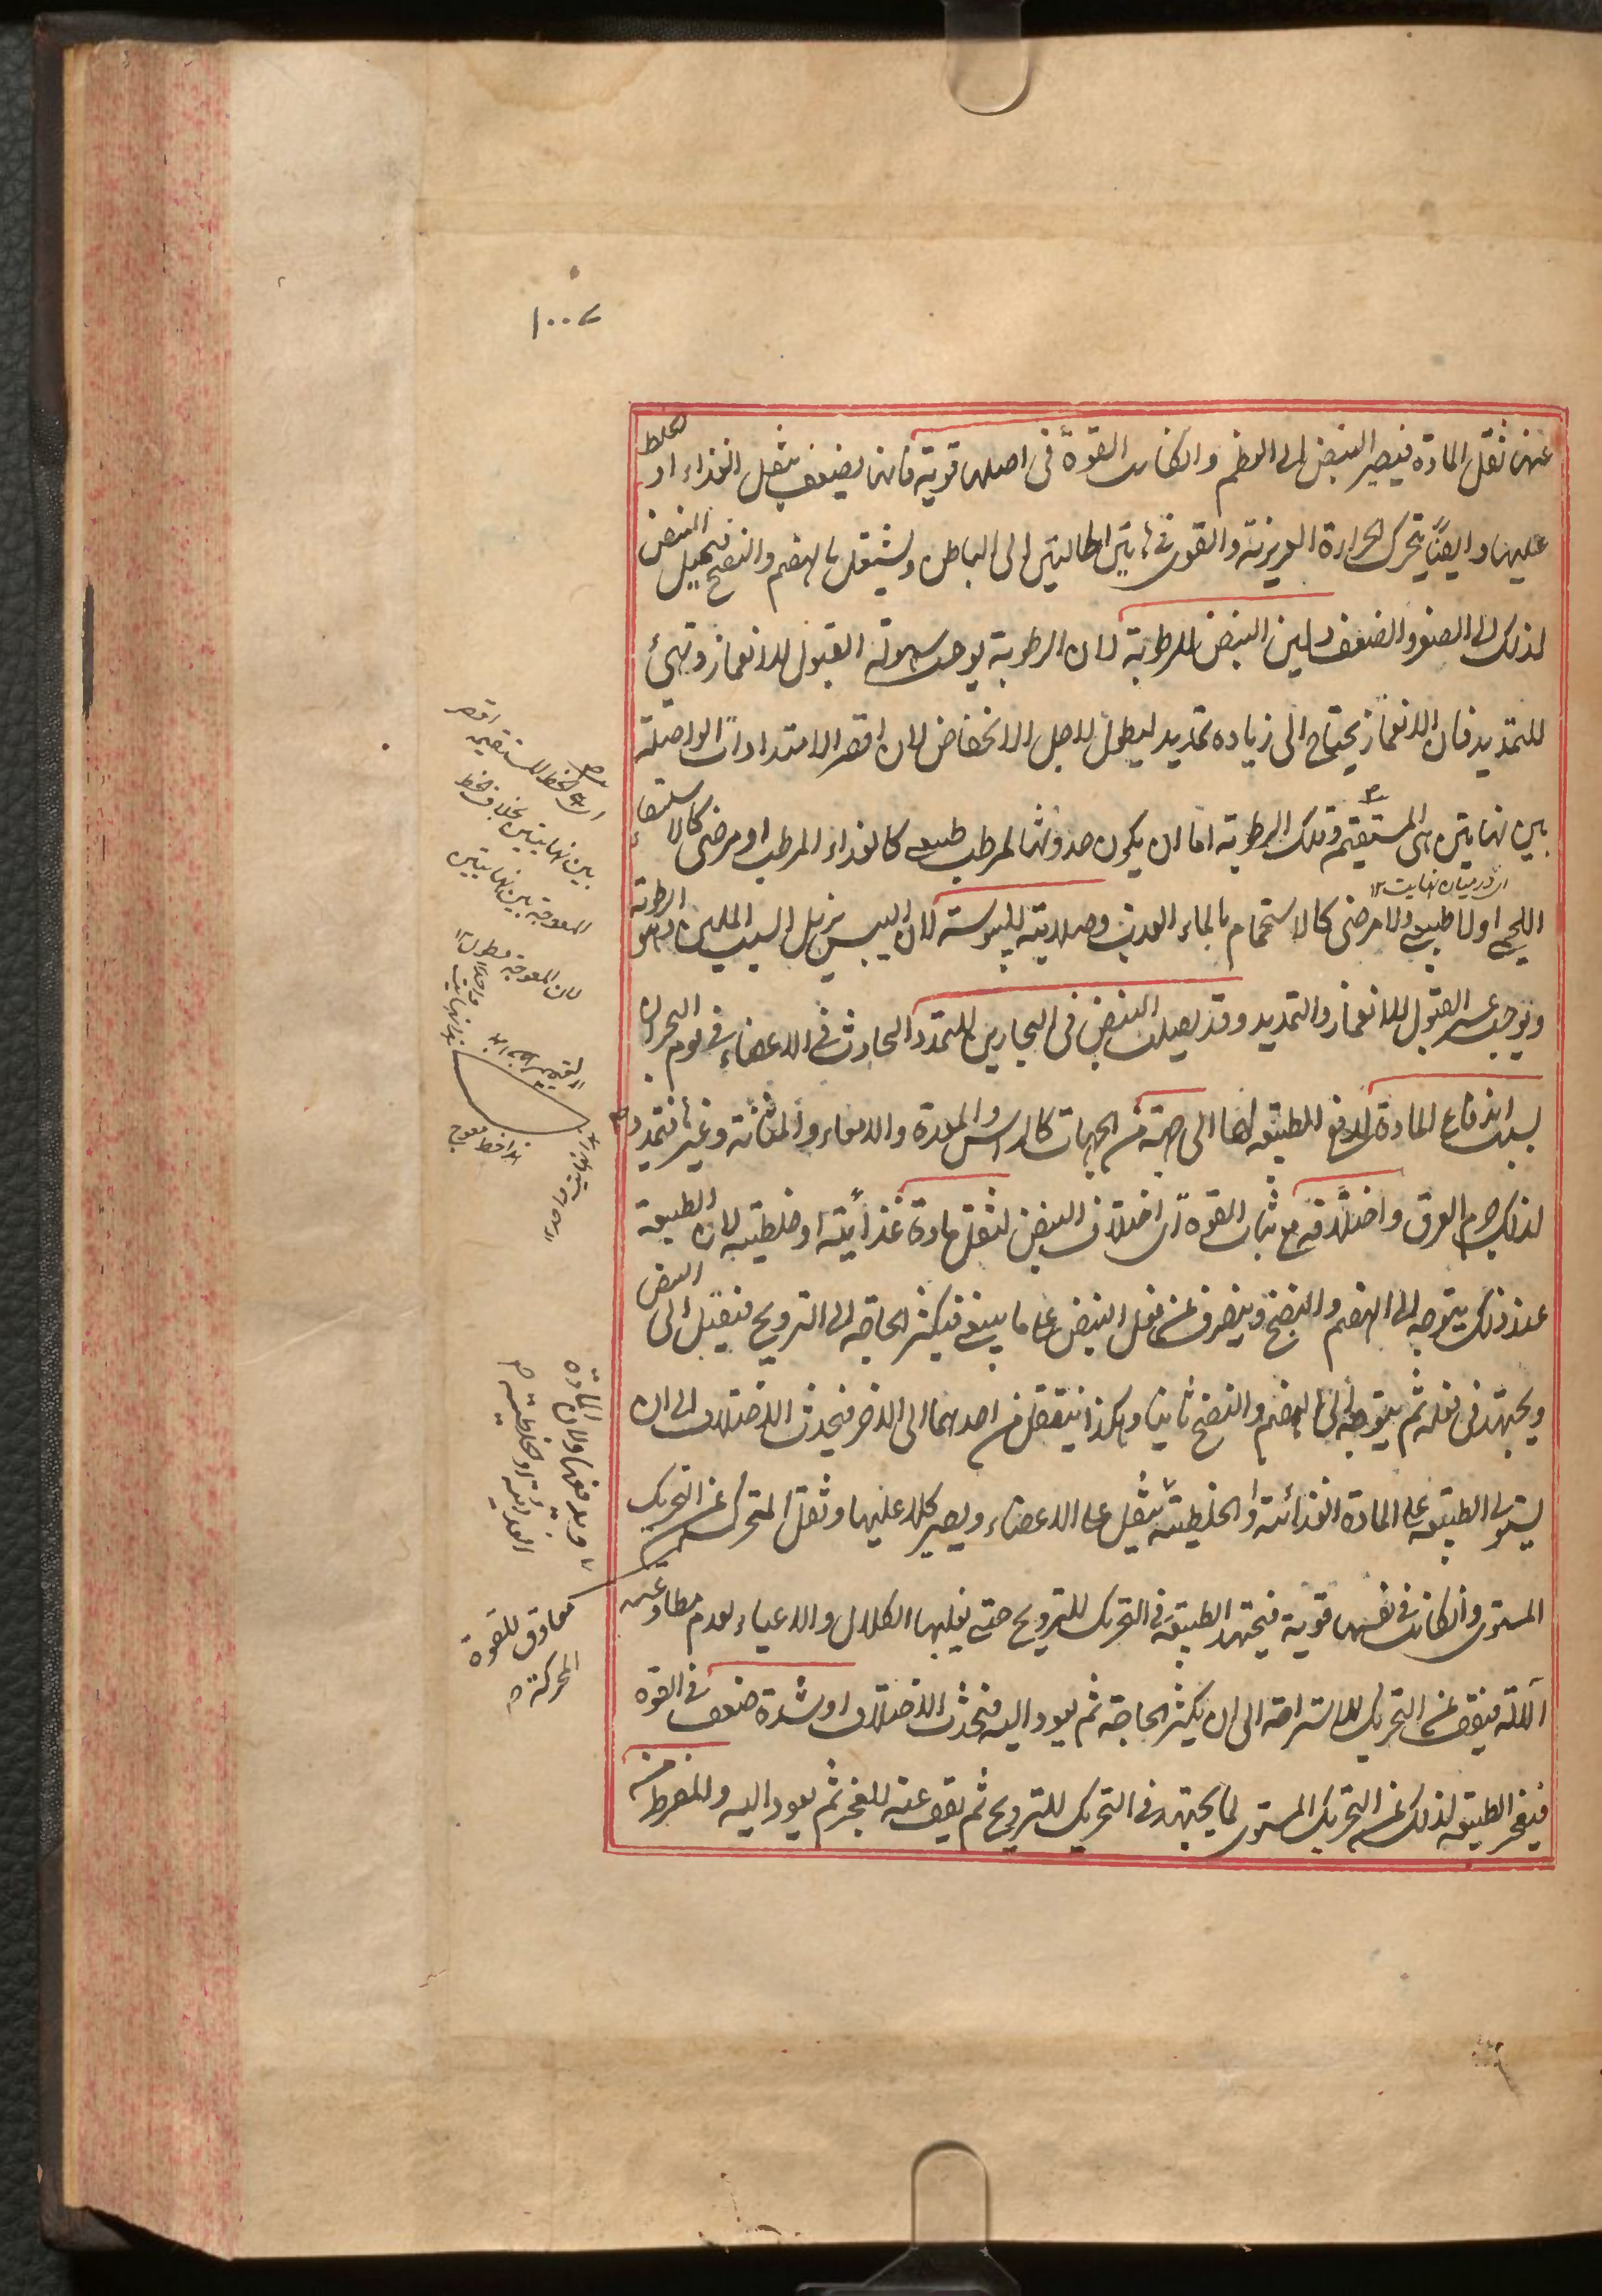 ١٠٠٧
عنها ثقل المادة فيصير النبض الى العظم وان كانت القوة فى اصلها قوية فانها يضعف بثقل الغذاء او الخلط
عليها وايضًا يتحرك الحرارة الغريزية والقوى الى الباطن وليشتغل بالهضم والنضج فيميل النبض
لذلك الى الصغر والضعف ولين النبض للرطوبة لان الرطوبة يوجب سهولة القبول للانغماز وتهيئ
للتمديد فان الانغماز يحتاج الى زيادة تمديد ليطول لاجل الانخفاض لان اقصر الامتدادات الواصلة
بين نهايتين هى المستقيم وتلك الرطوبة اما ان يكون حدوثها لمرطب طبيعى كالغذاء المرطب او مرضى كالاستسقاء
اللحمى او لا طبيعى ولا مرضى كالاستحمام بالماء العذب وصلابته لليبوسة لان اليبس يزيل السبب الملين وهو الرطوبة
ويوجب عسر القبول للانغماز والتمديد وقد يصلب النبض فى البحارين للتمدد الحادث فى الاعضاء فى يوم البحران
بسبب اندفاع المادة لدفع الطبيعة لها الى جهة من الجهات كالراس والمعدة والامعاء والمثانة وغيرها فتمدد
لذلك جرم العرق واختلافه مع ثبات القوة اى اختلاف النبض لثقل مادة غذائية او خلطية لان الطبيعة
عند ذلك يتوجه الى الهضم والنضج وينصرف عن فعل النبض على ما ينبغى فيكثر الحاجة الى الترويح فيقبل الى النبض
ويجتهد فى فعله ثم يتوجه الى الهضم والنضج ثانيا وهكذا ينتقل من احدهما الى الاخر فيحدث الاختلاف الى ان
يستولى الطبيعة على المادة الغذائية او الخلطية يثقل على الاعضاء ويصير كلا عليها وثقل المتحرك عن التحريك
المستوى وان كانت فى نفسها قوية فيجتهد الطبيعة فى التحريك للترويح حتى يغلبها الكلال والاعياء لعدم مطاوعة
الآلة فيقف عن التحريك للاستراحة الى ان يكثر الحاجة ثم يعود اليه فيحدث الاختلاف او شدة ضعف فى القوة
فيعجز الطبيعة لذلك عن التحريك المستوى لما يجتهد فى التحريك للترويح ثم يقف عنه للعجز ثم يعود اليه والمفرط منه
از درميان نهايت ١٢
اى الخط المستقيم اقصر
بين نهايتين بخلاف خط
المعوجة بين نهايتين
لان المعوجة يطول ١٢
هذا خط معوج
ويدفعها ولان المادة
الغذائية او خلطية
معاوق للقوة
المحركة